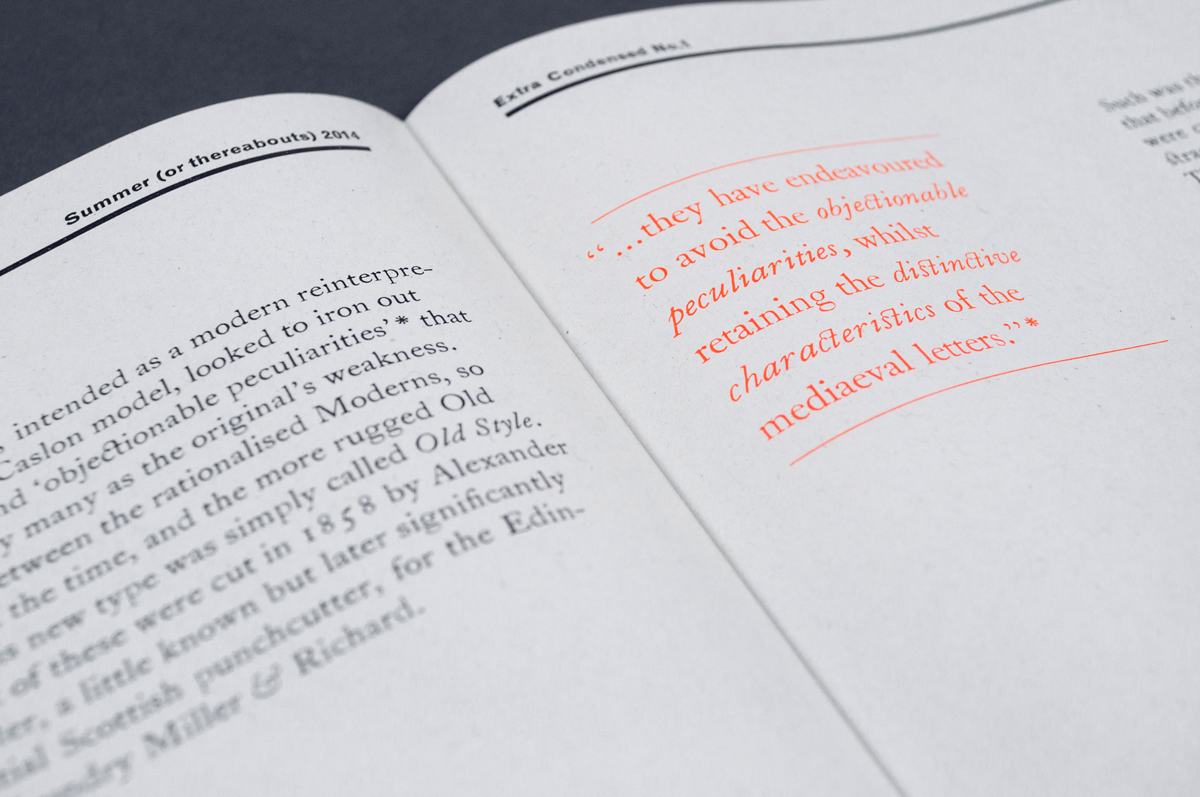 Summer (or thereabouts) 2014
intended as a modern reinterpre-
Caslon model, looked to iron out
‘objectionable peculiarities’* that
many as the original’s weakness.
between the rationalised Moderns, so
the time, and the more rugged Old
new type was simply called Old Style.
of these were cut in 1858 by Alexander
a little known but later significantly
Scottish punchcutter, for the Edin-
Miller & Richard.
Extra Condensed No.1
“...they have endeavoured
to avoid the objectionable
peculiarities, whilst
retaining the distinctive
characteristics of the
mediaeval letters.”*
Such was
that
were